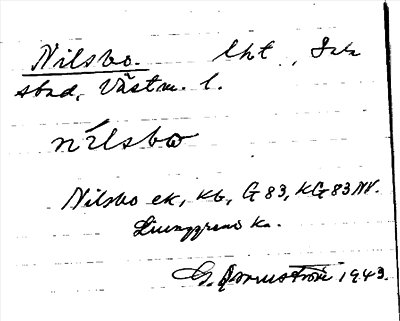 Nilsbo. lht, Sala
stad, Västm. l.
nilsbo
Nilsbo ek, Kb, G 83, KG 83 NV.
Ljunggrens ka.
G. 1943.